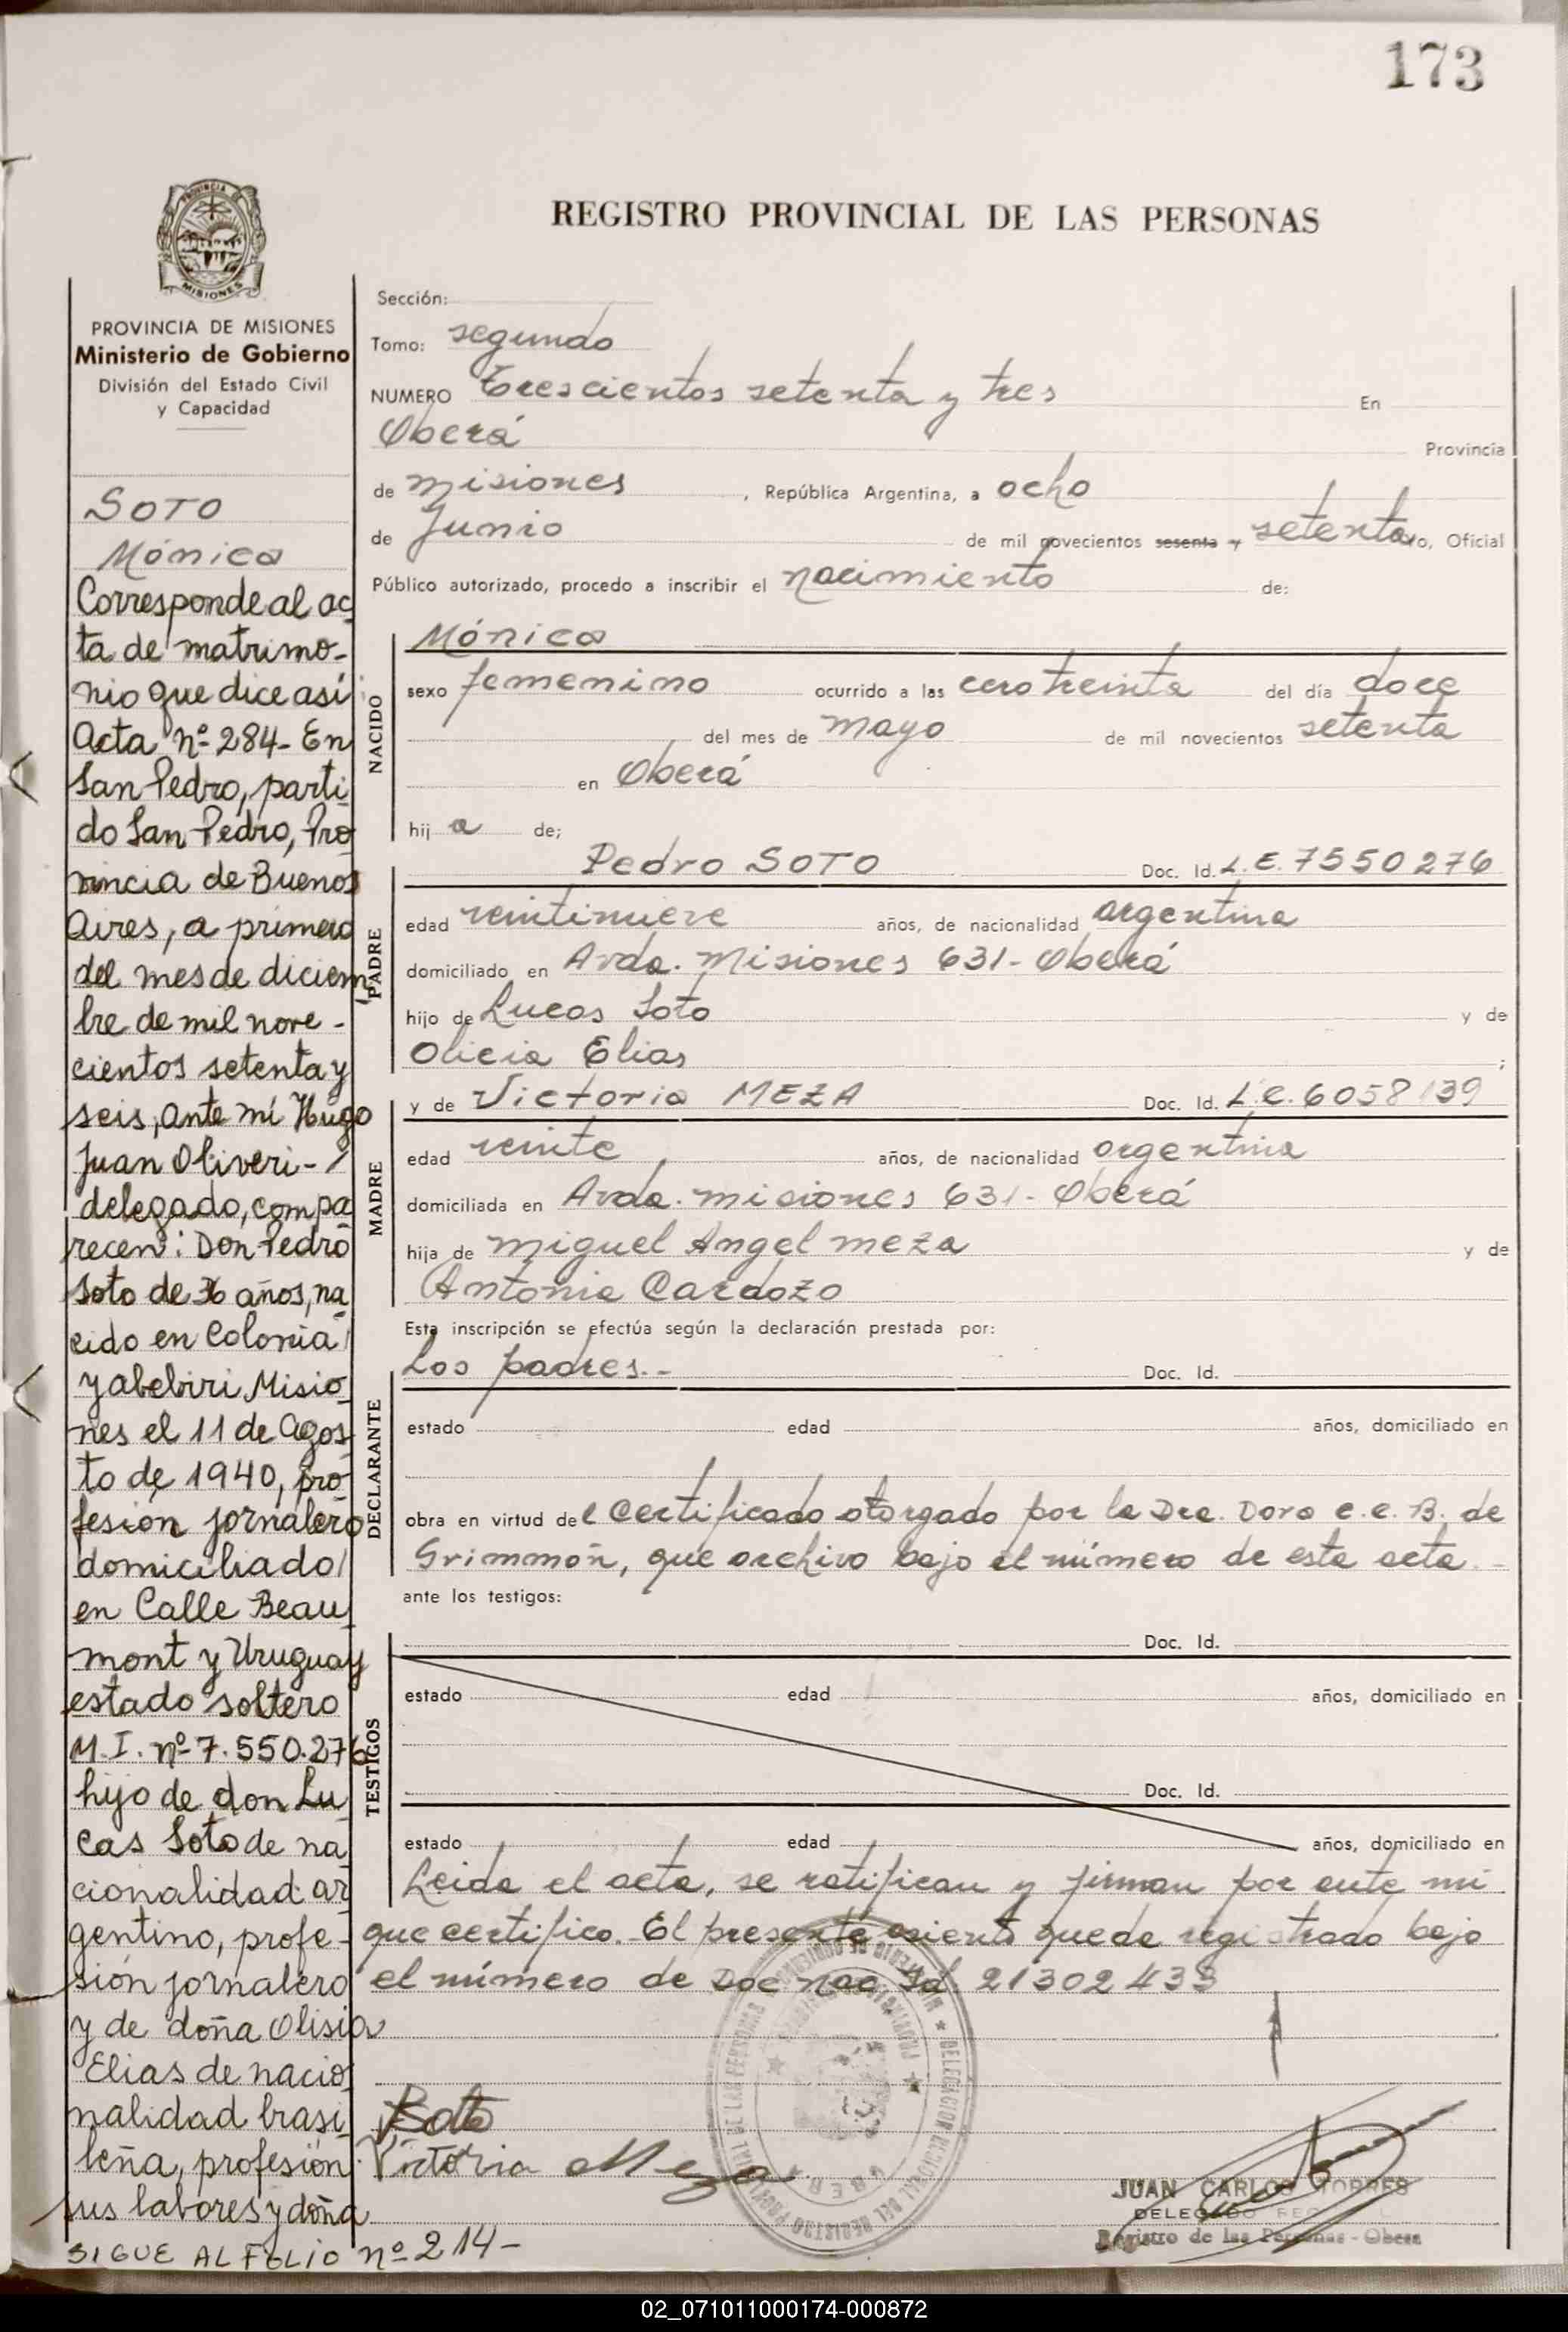 173
REGISTRO PROVINCIAL DE LAS PERSONAS
MISIONES
PROVINCIA DE MISIONES
Ministerio de Gobierno
División del Estado Civil
y Capacidad
SOTO
Mónica
Corresponde al ac
ta de matrimo-
nio que dice así
Acta nº 284- En
San Pedro, parti
do San Pedro, Pro
vincia de Buenos
Aires, a primero
del mes de diciem
bre de mil nove-
cientos setenta y
seis, ante mi Hugo
Juan Oliveri-
delegado, compa
recen: Don Pedro
Soto de 36 años, na
cido en Colonia
Yabebiri Misio
nes el 11 de Agos
to de 1940, pro
fesión jornalero
domiciliado
en Calle Beau
mont y Uruguay
estado soltero
M.I. nº 7.550.276
hijo de don Lu
cas Soto de na
cionalidad ar
gentino, profe-
sión jornalero
y de doña Olisia
Elias de nacio
nalidad brasi
leña, profesión
sus labores y doña
SIGUE AL FOLIO nº 214-
Sección:
Tomo: segundo
NUMERO trescientos setenta y tres En
Oberá Provincia
de misiones , República Argentina, a ocho
de Junio de mil novecientos sesenta y setenta yo, Oficial
Público autorizado, procedo a inscribir el nacimiento de:
NACIDO
Mónica
sexo femenino ocurrido a las cero treinta del día doce
del mes de mayo de mil novecientos setenta
en Oberá
hij a de;
PADRE
Pedro SOTO Doc. Id. L.E. 7550276
edad veintinueve años, de nacionalidad argentina
domiciliado en Avda. Misiones 631- Oberá
hijo de Lucas Soto y de
Olicia Elias ;
MADRE
y de Victoria MEZA Doc. Id. L.C. 6058139
edad veinte años, de nacionalidad argentina
domiciliada en Avda. misiones 631- Oberá
hija de miguel Angel meza y de
Antonia Cardozo
Esta inscripción se efectúa según la declaración prestada por:
DECLARANTE
Los padres.- Doc. Id.
estado edad años, domiciliado en
obra en virtud del certificado otorgado por la Dra. Dora e.e. B. de
Grimmon, que archivo bajo el número de esta acta.-
ante los testigos:
TESTIGOS
Doc. Id.
estado edad años, domiciliado en
Doc. Id.
estado edad años, domiciliado en
Leida el acta, se ratifican y firman por ante mi
que certifico. El presente asiento queda registrado bajo
el número de Doc nac Id. 21302433
Victoria Meza
JUAN CARLOS TORRES
DELEGADO
Registro de las Personas - Obera
02_071011000174-000872